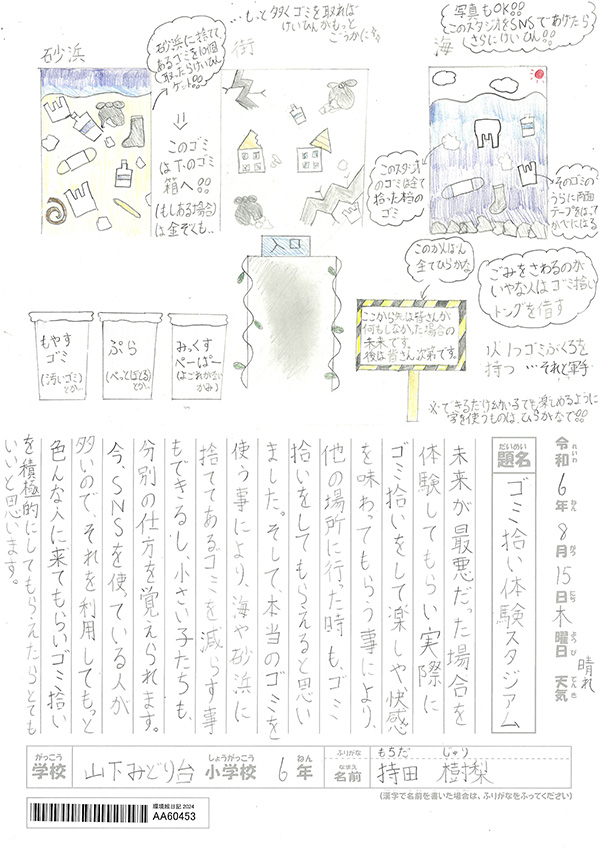 …もっと多くゴミを取れば
けいひんがもっと
ごうかに!!
写真もOK!!
このスタジオをSNSであげたら
さらにけいひん!!
砂浜
街
海
砂浜に捨てて
あるゴミを10個
取ったらけいひん
ゲット!!
⇓
このゴミ
は下のゴミ
箱へ!!
(もしある場合
は金ぞくも..
このスタジオ
のゴミは全て
拾った本当の
ゴミ
そのゴミの
うらに両面
テープをはって
かべにはる
入口
このかんばん
全てひらがな
ごみをさわるのが
いやな人はゴミ拾い
トングを借す
ここから先は皆さんが
何もしなかった場合の
未来です。
後は皆さん次第です。
1人1つゴミぶくろを
持つ …それと軍手
※できるだけ幼い子でも楽しめるように
字を使うものは、ひらがなで!!
もやす
ゴミ
(汚いゴミ)
とか…
ぷら
(ぺっとぼとる)
とか…
みっくす
ぺーぱー
(よごれかない
かみ)
令和6年8月15日木曜日 天気 晴れ
れいわ ねん がつ にち ようび てんき
だいめい
題名 ゴミ拾い体験スタジアム
未来が最悪だった場合を
体験してもらい実際に
ゴミ拾いをして楽しや快感
を味わってもらう事により、
他の場所に行った時も、ゴミ
拾いをしてもらえると思い
ました。そして、本当のゴミを
使う事により、海や砂浜に
捨ててあるゴミを減らす事
もできるし、小さい子たちも、
分別の仕方を覚えられます。
今、SNSを使ている人が
多いので、それを利用してもっと
色んな人に来てもらいゴミ拾い
を積極的にしてもらえたらとても
いいと思います。
がっこう しょうがっこう ねん ふりがな もちだ じゅり
学校 山下みどり台 小学校 6年 なまえ 名前 持田 樹梨
(漢字で名前を書いた場合は、ふりがなをふってください)
環境絵日記 2024
AA60453